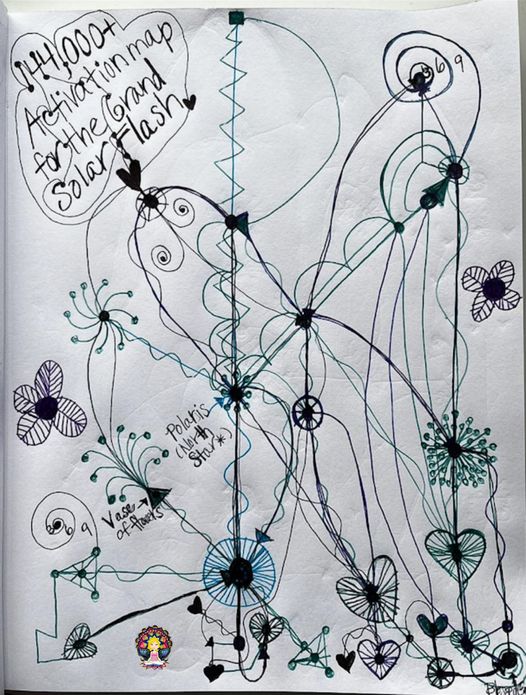 144,000+
Activation map
for the Grand
Solar Flash
369
Polaris
(North
Star*)
Vase →
of flowers
369